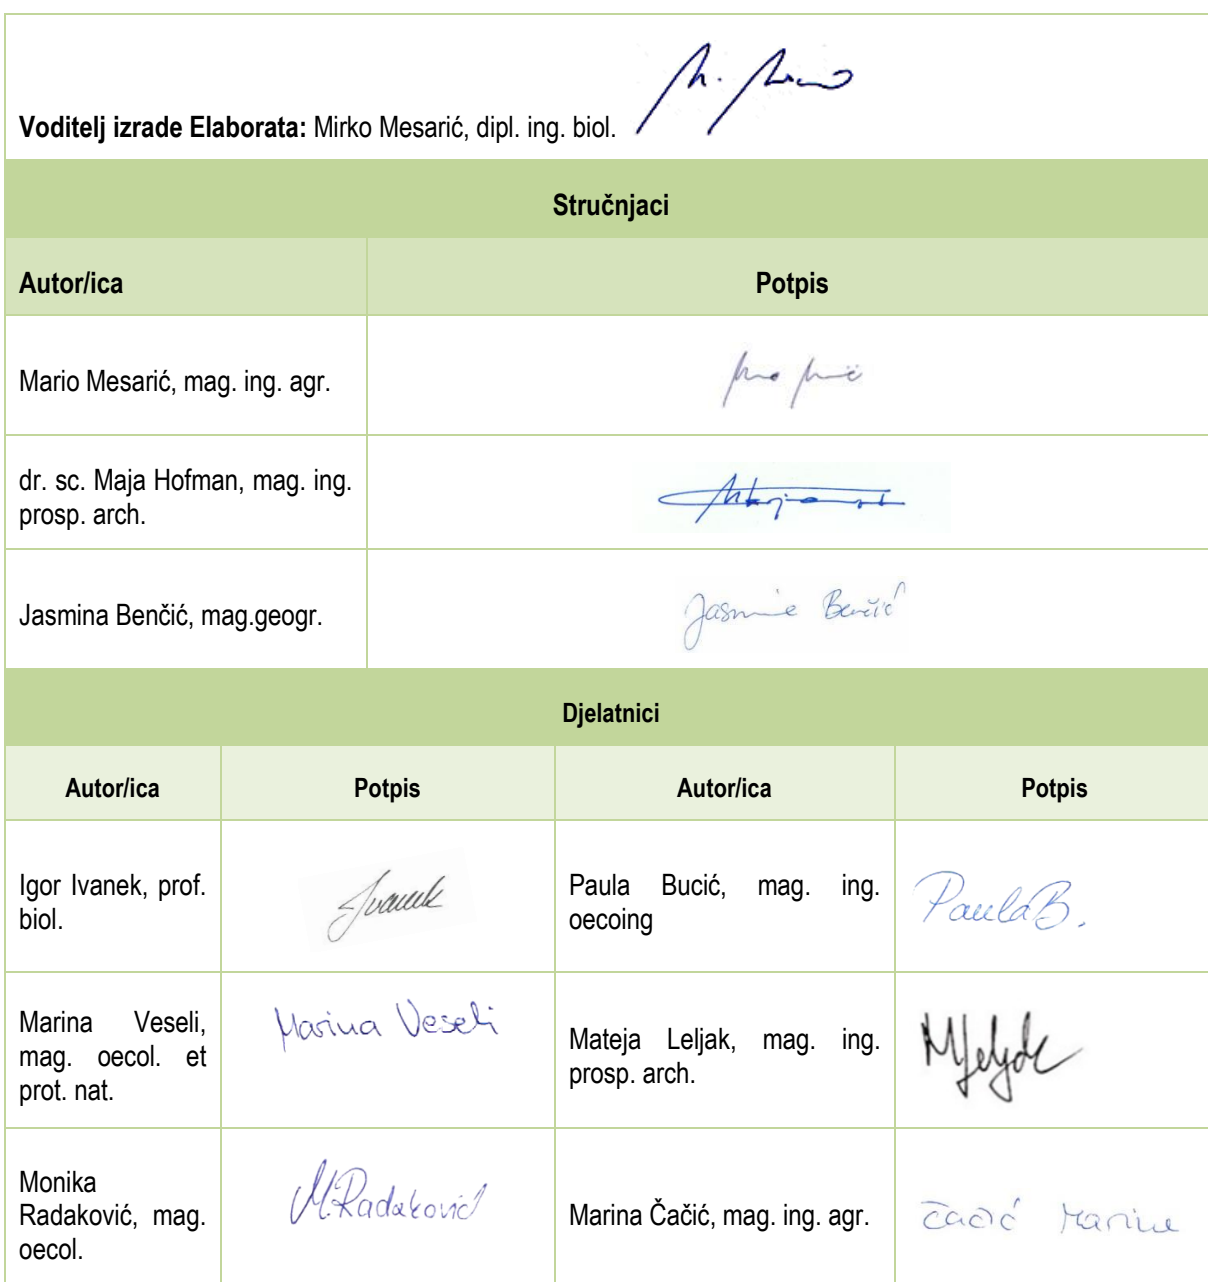 Voditelj izrade Elaborata: Mirko Mesarić, dipl. ing. biol.
Stručnjaci
Autor/ica Potpis
Mario Mesarić, mag. ing. agr.
dr. sc. Maja Hofman, mag. ing.
prosp. arch.
Jasmina Benčić, mag.geogr. Jasmine Benčić
Djelatnici
Autor/ica Potpis Autor/ica Potpis
Igor Ivanek, prof.
biol.
Ivanek
Paula Bucić, mag. ing.
oecoing
PaulaB.
Marina Veseli,
mag. oecol. et
prot. nat.
Marina Veseli
Mateja Leljak, mag. ing.
prosp. arch.
Monika
Radaković, mag.
oecol.
M.Radaković
Marina Čačić, mag. ing. agr.
Čačić Marina